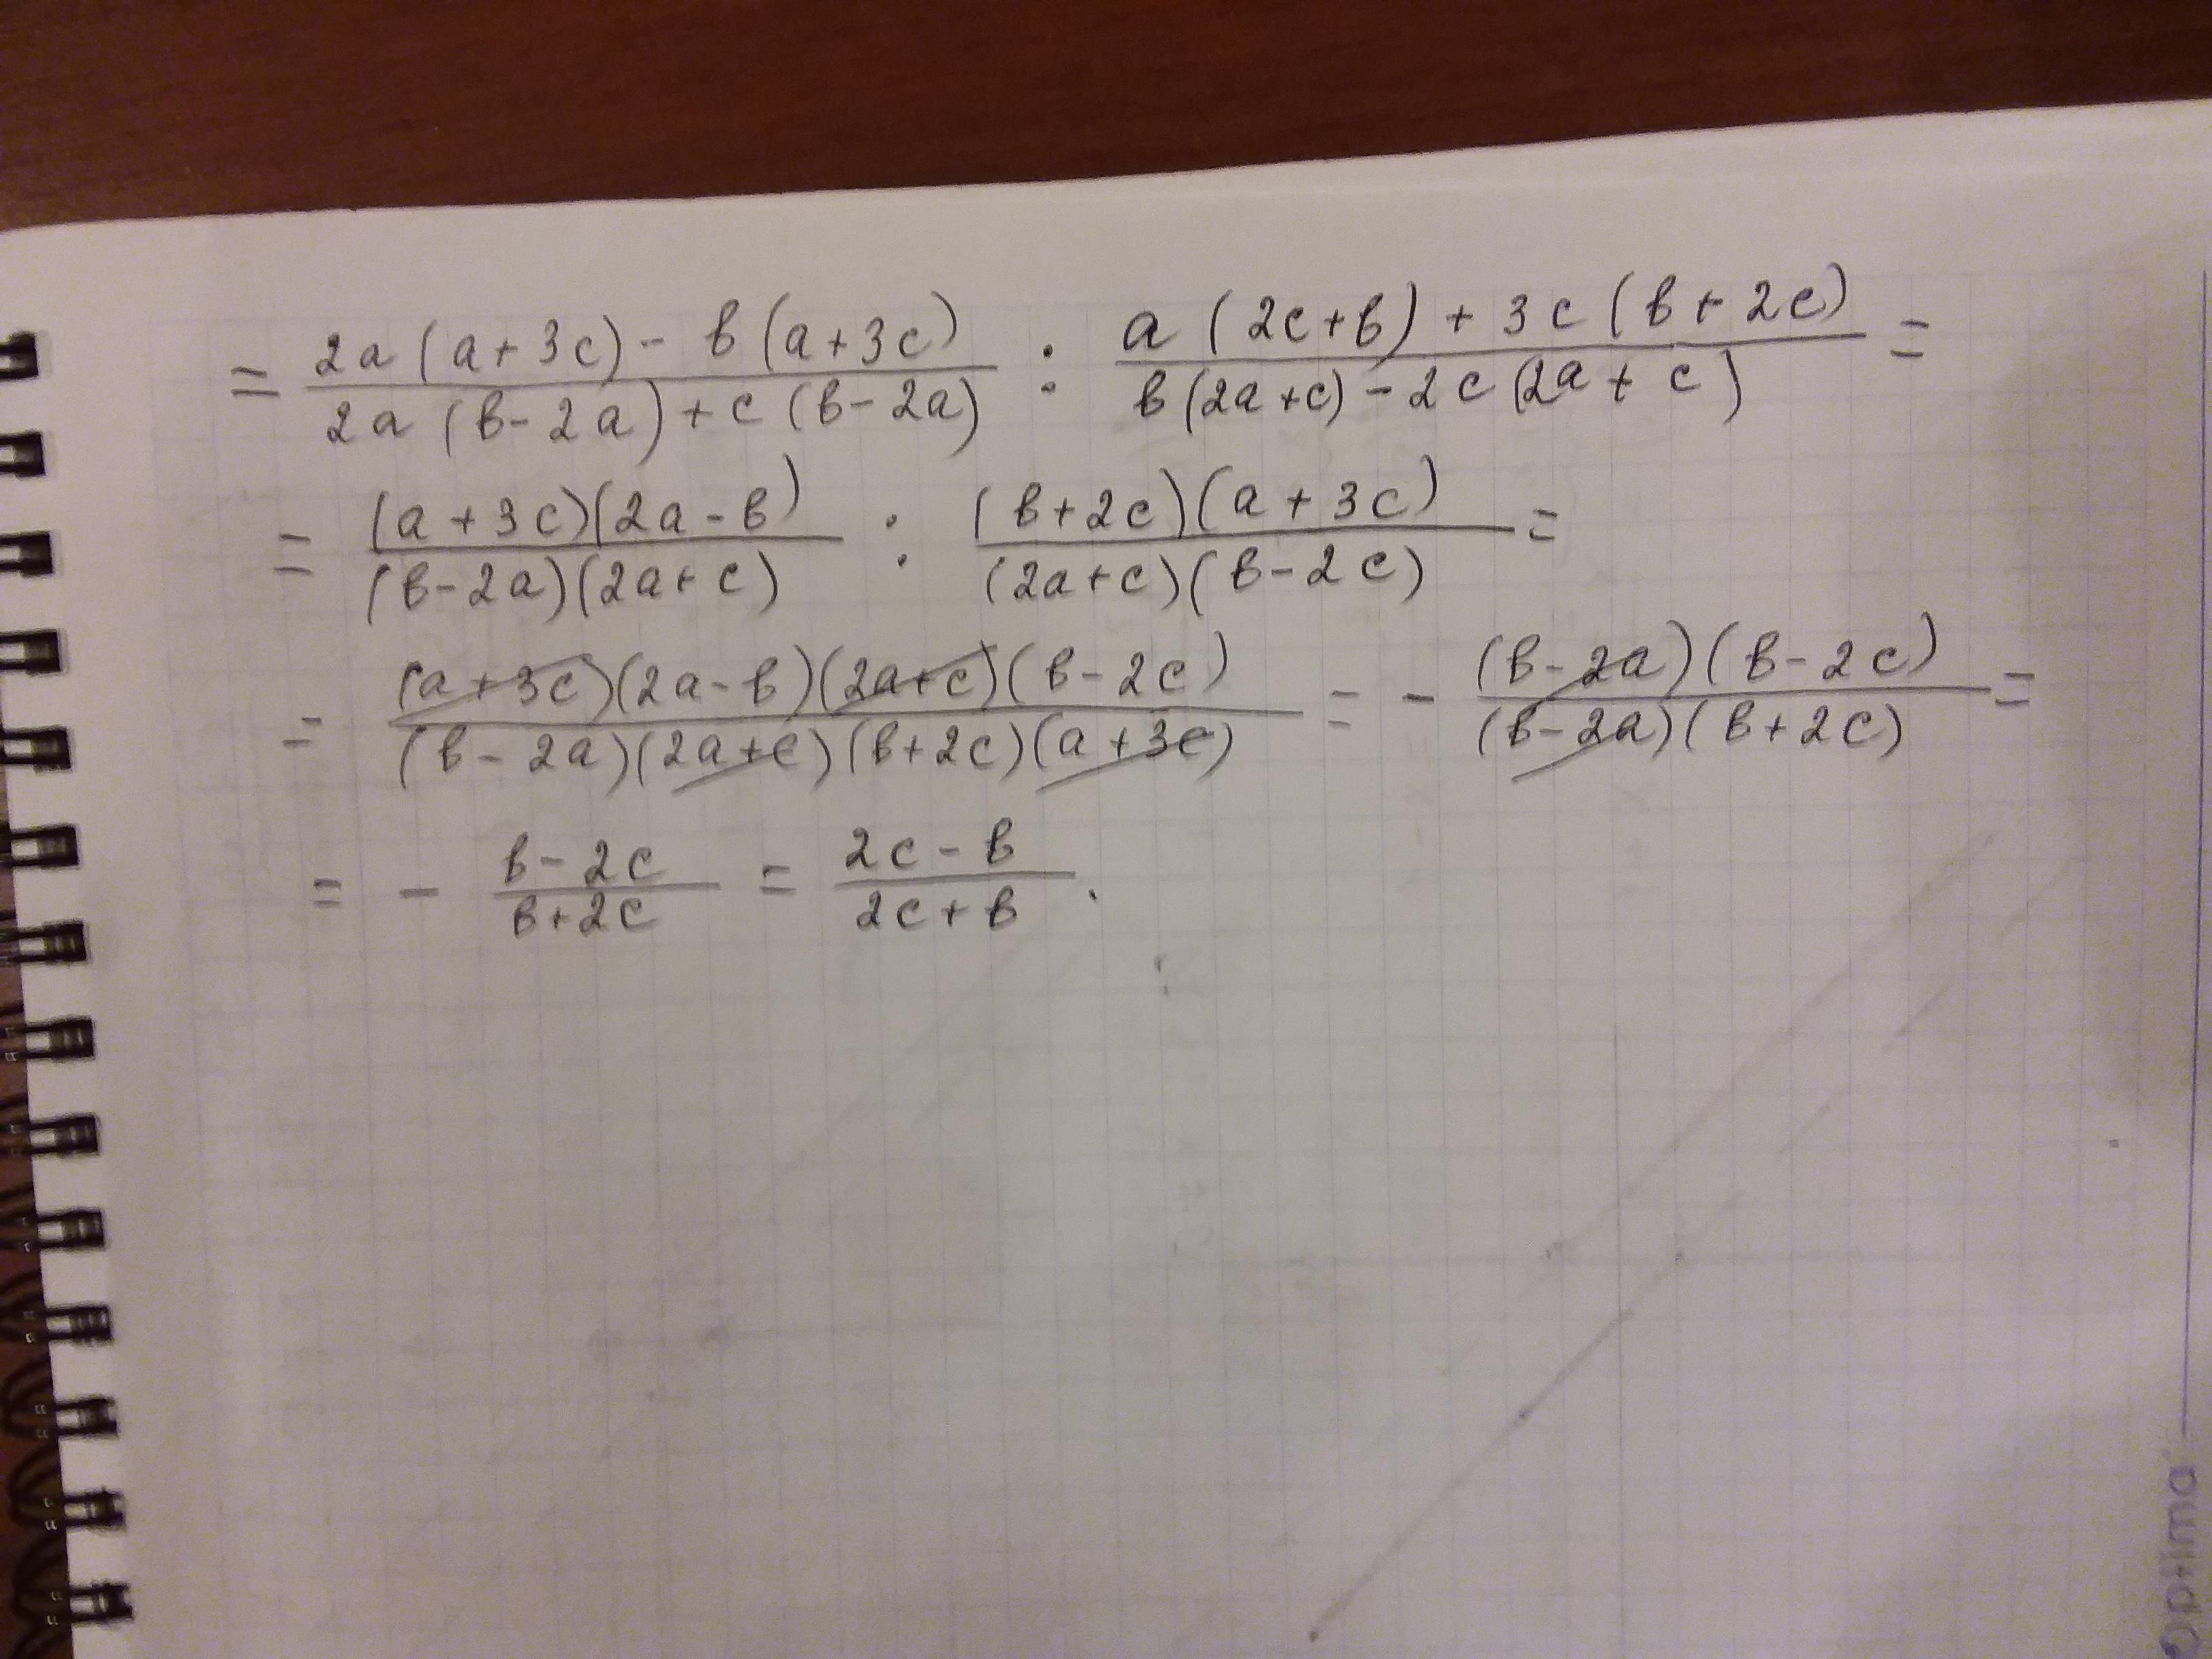 = (2a(a+3c) - b(a+3c))/(2a(b-2a)+c(b-2a)) : (a(2c+b)+3c(b+2c))/(b(2a+c)-2c(2a+c)) =
= ((a+3c)(2a-b))/((b-2a)(2a+c)) : ((b+2c)(a+3c))/((2a+c)(b-2c)) =
= ((a+3c)(2a-b)(2a+c)(b-2c))/((b-2a)(2a+c)(b+2c)(a+3c)) = - ((b-2a)(b-2c))/((b-2a)(b+2c)) =
= - (b-2c)/(b+2c) = (2c-b)/(2c+b).
Optima